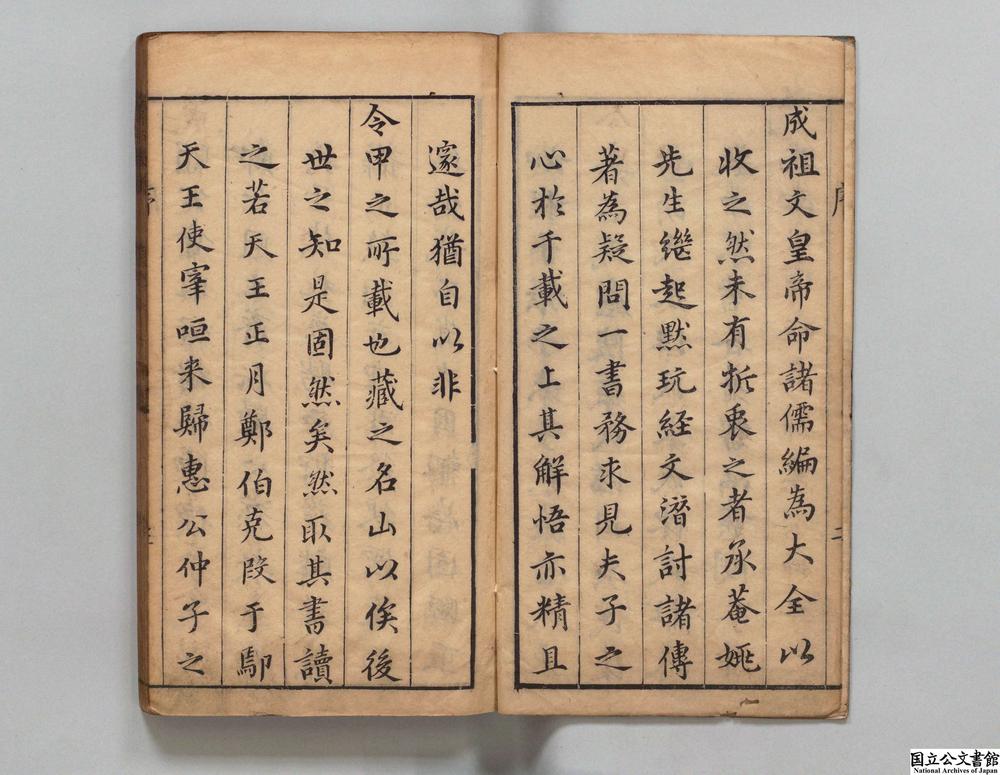 成祖文皇帝命諸儒編為大全以
收之然未有折衷之者承菴姚
先生繼起默玩經文潛討諸傳
著為疑問一書務求見夫子之
心於千載之上其解悟亦精且
邃哉猶自以非
令甲之所載也藏之名山以俟後
世之知是固然矣然取其書讀
之若天王正月鄭伯克段于鄢
天王使宰咺来歸惠公仲子之
国立公文書館
National Archives of Japan